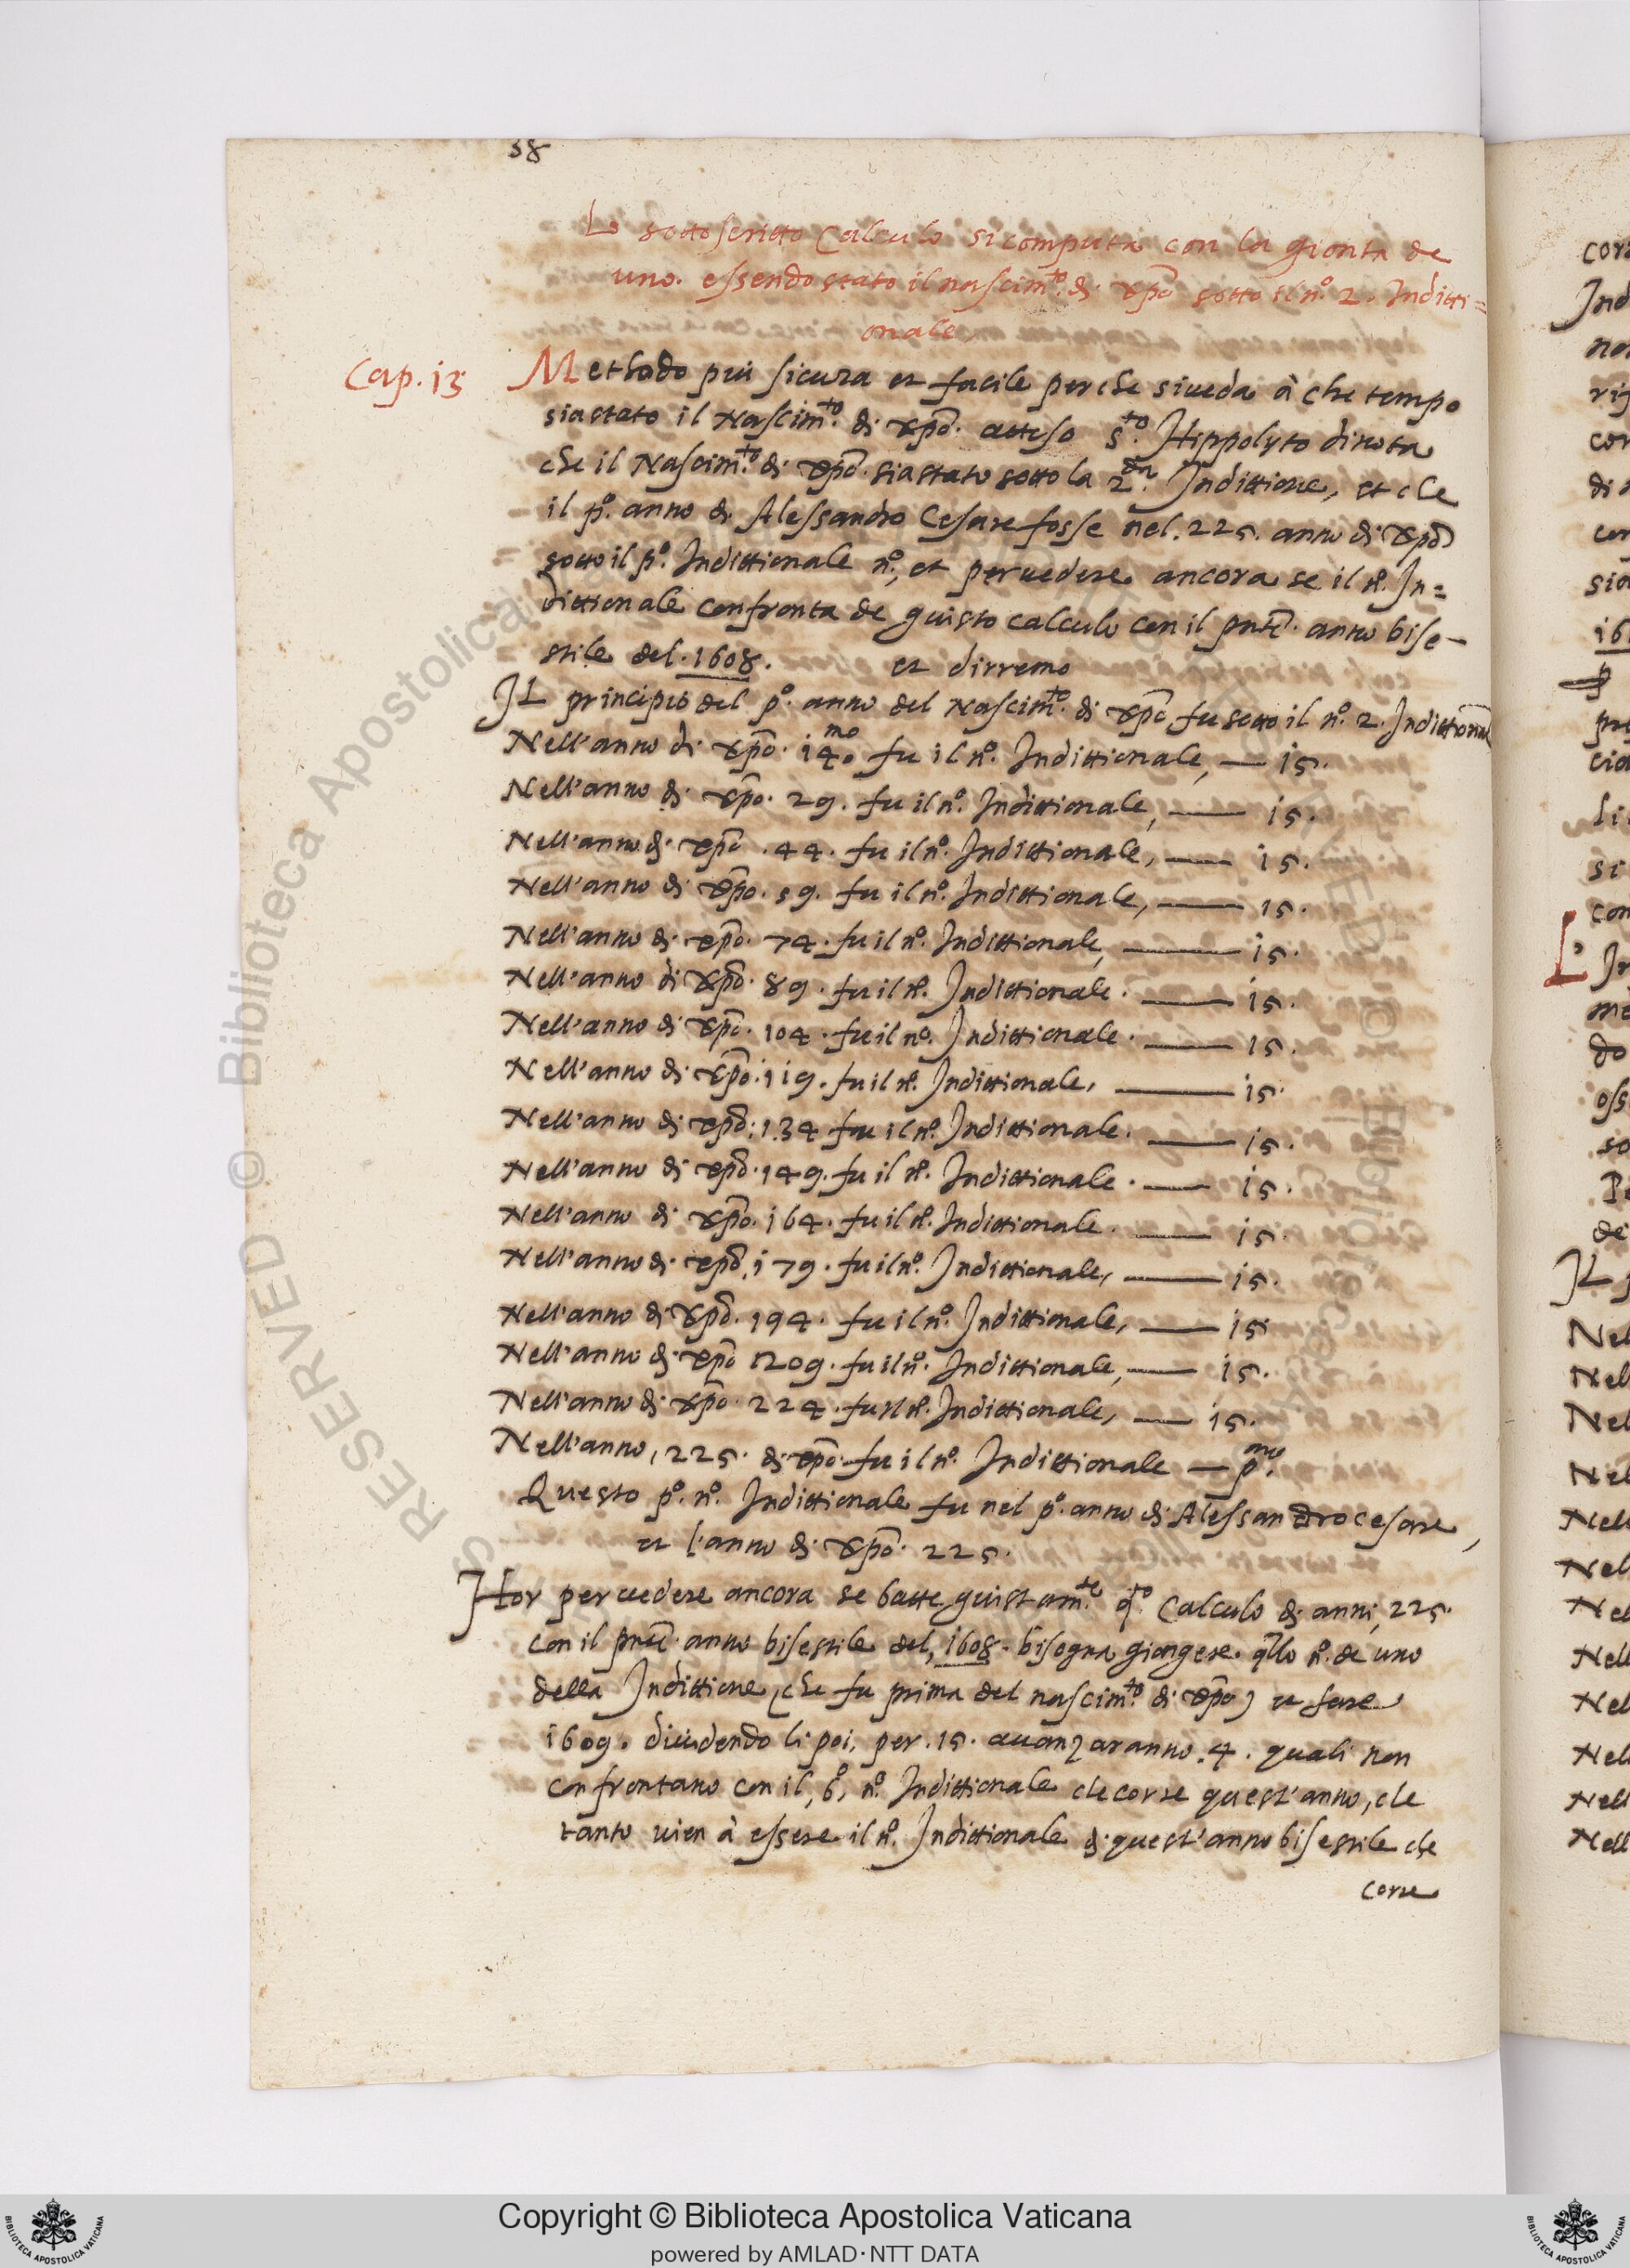 38
Lo sottoscritto Calculo si computa con la gionta de
uno. essendo stato il nascim.to di Xp̄o sotto il n.o 2. Inditti=
onale,
Cap. 13 Methodo più sicura et facile perche si ueda à che tempo
sia stato il Nascim.to di Xp̄o. atteso S.to Hippolyto dinota
che il Nascim.to di Xp̄o. sia stato sotto la 2.da Indittione, et che
il p.o anno di Alessandro Cesare fosse nel. 225. anno di Xp̄o
sotto il p.o Indittionale n.o, et per uedere ancora se il n.o In=
dittionale confronta de guisto calculo con il pn̄te. anno bise-
stile del. 1608. et dirremo
IL principio del p.o anno del Nascim.to di Xp̄o fu sotto il n.o 2. Indittional
Nell'anno di Xp̄o. 14.mo fu il n.o Indittionale, — 15.
Nell'anno di Xp̄o. 29. fu il n.o Indittionale, — 15.
Nell'anno di Xp̄o .44. fu il n.o Indittionale, — 15.
Nell'anno di Xp̄o. 59. fu il n.o Indittionale, — 15.
Nell'anno di Xp̄o. 74. fu il n.o Indittionale, — 15.
Nell'anno di Xp̄o. 89. fu il n.o Indittionale. — 15.
Nell'anno di Xp̄o. 104. fu il n.o Indittionale. — 15.
Nell'anno di Xp̄o. 119. fu il n.o Indittionale, — 15.
Nell'anno di Xp̄o. 134 fu il n.o Indittionale. — 15.
Nell'anno di Xp̄o. 149. fu il n.o Indittionale. — 15.
Nell'anno di Xp̄o. 164. fu il n.o Indittionale. — 15.
Nell'anno di Xp̄o. 179. fu il n.o Indittionale, — 15.
Nell'anno di Xp̄o. 194. fu il n.o Indittionale, — 15.
Nell'anno di Xp̄o 209. fu il n.o Indittionale, — 15.
Nell'anno di Xp̄o. 224. fu il n.o Indittionale, — 15.
Nell'anno, 225. di Xp̄o. fu il n.o Indittionale — p.mo
Questo p.o n.o Indittionale fu nel p.o anno di Alessandro cesare,
et l'anno di Xp̄o. 225.
Hor per uedere ancora se batte guistam.te q.to Calculo di anni, 225.
con il pn̄te. anno bisestile del, 1608. bisogna giongere. q̄llo n.o de uno
della Indittione, (che fu prima del nascim.to di Xp̄o) et fare
1609. diuidendoli poi, per. 15. auanzaranno .4. quali non
confrontano con il, 6,o n.o Indittionale che corre quest'anno, che
tanto uien à essere il n.o Indittionale di quest'anno bisestile che
corre
cor
Ind
di
16
L'
me
do
oss
so
de
IL
Nel
Nel
Nel
Nel
Nell
Nel
Nel
Nell
Nel
Nell
Nell
Nell
© Biblioteca Apostolica
RESERVED
Copyright © Biblioteca Apostolica Vaticana
powered by AMLAD·NTT DATA
BIBLIOTECA APOSTOLICA VATICANA
BIBLIOTECA APOSTOLICA VATICANA